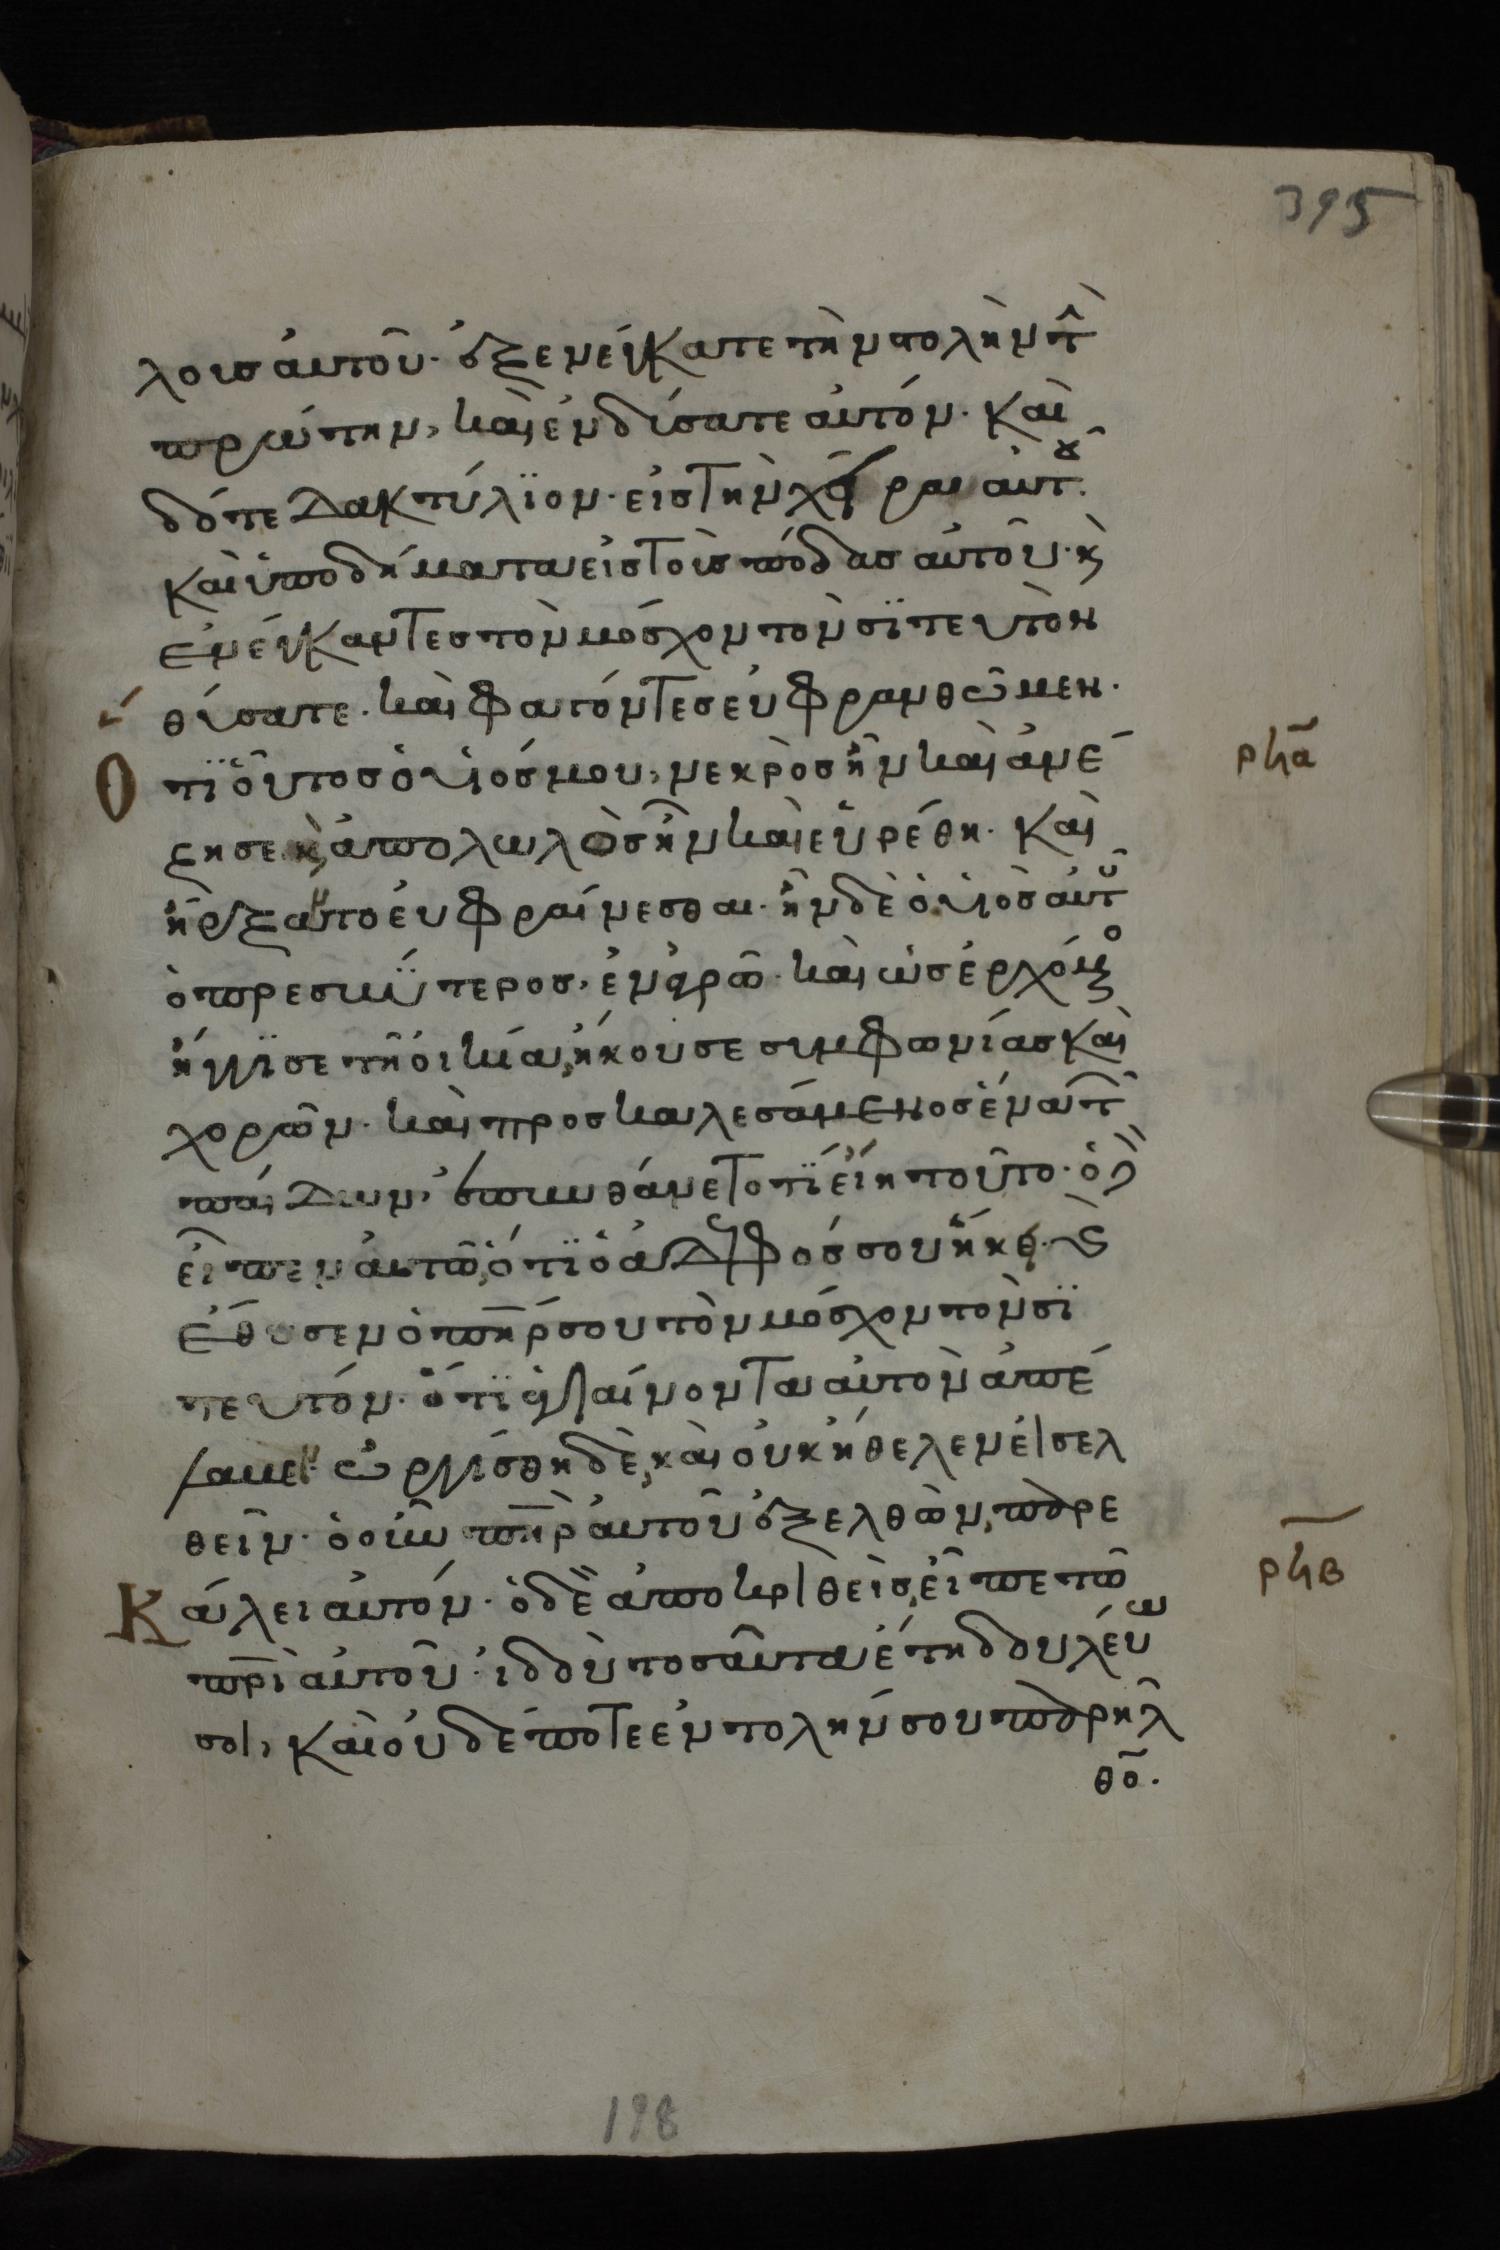 395
λοισ αὐτοῦ· ἐξενέγκατε τὴν στολὴν τὴ
πρώτην, καὶ ἐνδύσατε αὐτόν· καὶ
δότε δακτύλϊον· εἰσ τὴν χεῖρα αὐτοῦ.
καὶ ὑποδήματα εἰσ τοὺσ πόδασ αὐτοῦ· κὶ
ἐνέγκαντεσ τὸν μόσχον τὸν σϊτευτὸν
θύσατε· καὶ φαγόντεσ εὐφρανθῶμεν·
Ο τϊ οὗτοσ ὁ υἱόσ μου, νεκρὸσ ἦν καὶ ἀνέ
ρϟα
ζησε κὶ ἀπολωλὸσ ἦν καὶ εὑρέθη· καὶ
ἤρξατο εὐφραίνεσθαι· ἦν δὲ ὁ υἱὸσ αὐτοῦ
ὁ πρεσβύτεροσ, ἐν ἀγρῶ· καὶ ὡσ ἐρχόμο
ἤγγϊσε τῆ οἰκία, ἤκουσε συμφωνίασ καὶ
χορῶν· καὶ προσκαλεσάμενοσ ἕνα τῶ
παίδων, ἐπυνθάνετο τϊ εἴη τοῦτο· ὁ δὲ
εἶπεν αὐτῶ, ὅτϊ ὁ ἀδελφόσ σου ἥκει· καὶ
ἔθυσεν ὁ πηρ σου τὸν μόσχον τὸν σϊ
τευτόν· ὅτϊ ὑγιαίνοντα αὐτὸν ἀπέ
λαβεν· ὠργίσθη δὲ, καὶ οὐκ ἤθελεν εἰσελ
θεῖν· ὁ οὖν πηρ αὐτοῦ ἐξελθὼν, παρε
Κ άλει αὐτόν· ὁ δὲ ἀποκριθεὶσ, εἶπε τῶ
ρϟβ
πρὶ αὐτοῦ· ἰδοὺ τοσαῦτα ἔτη δουλεύω
σοι, καὶ οὐδέποτε ἐντολήν σου παρηλ
θο.
198